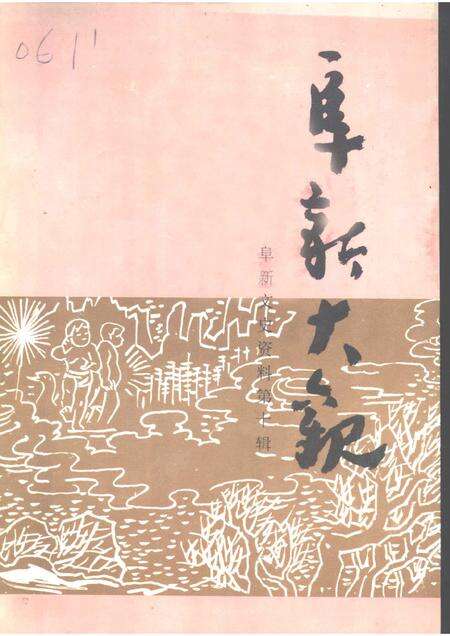 0611
阜新大观
阜新文史资料第十辑